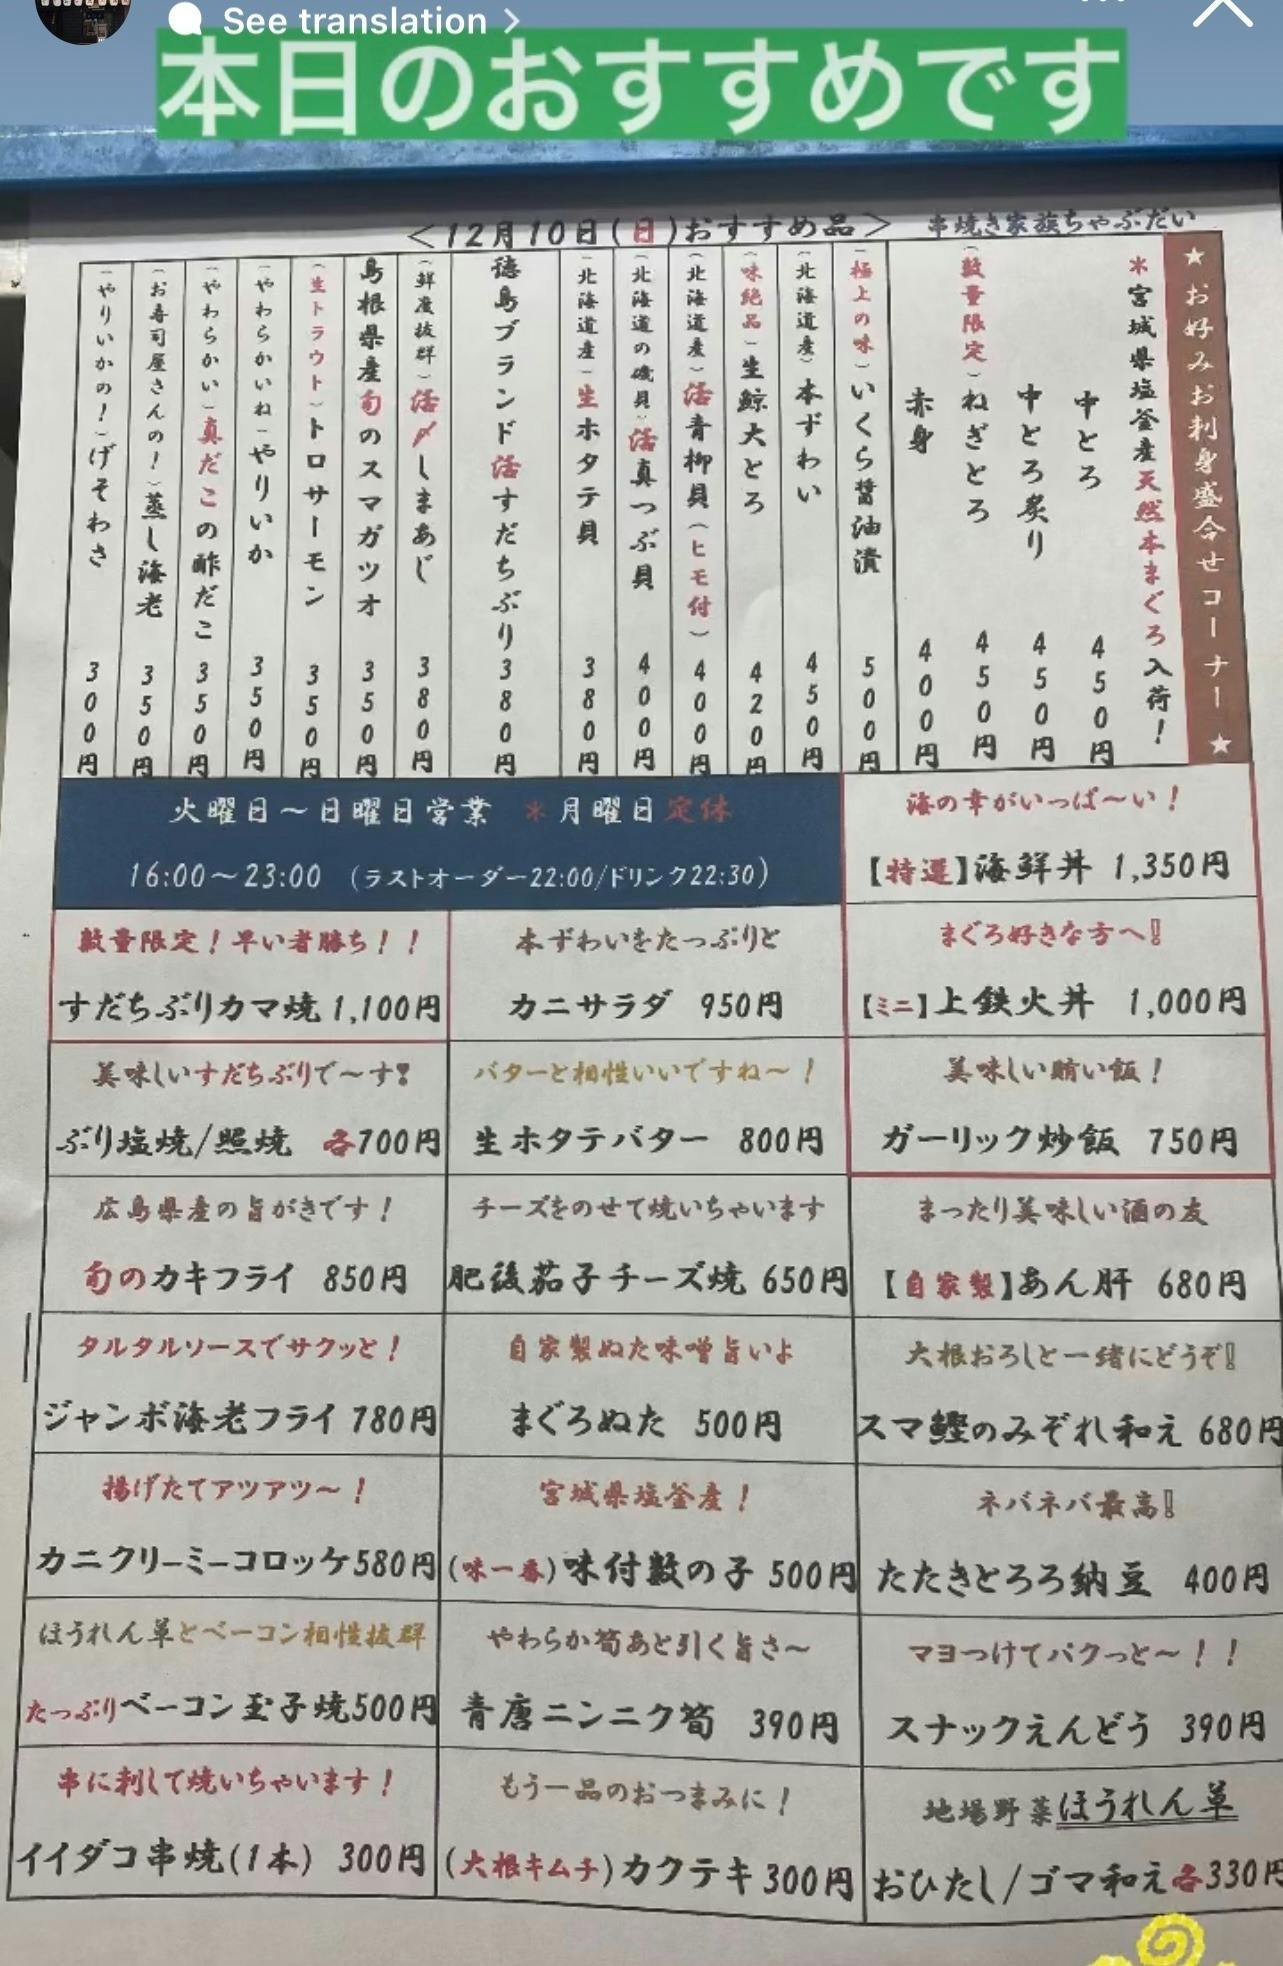 See translation >
本日のおすすめです
<12月10日(日)おすすめ品> 串焼き家族ちゃぶだい
★お好みお刺身盛合せコーナー★
＊宮城県塩釜産天然本まぐろ入荷！
中とろ 450円
中とろ炙り 450円
(数量限定)ねぎとろ 450円
赤身 400円
(極上の味)いくら醤油漬 500円
(北海道産)本ずわい 450円
(味絶品)生鯨大とろ 420円
(北海道産)活青柳貝(ヒモ付) 400円
(北海道の磯貝)活真つぶ貝 400円
(北海道産)生ホタテ貝 380円
徳島ブランド活すだちぶり 380円
(鮮度抜群)活〆しまあじ 380円
島根県産旬のスマガツオ 350円
(生トラウト)トロサーモン 350円
(やわらかいね)やりいか 350円
(やわらかい)真だこの酢だこ 350円
(お寿司屋さんの！)蒸し海老 350円
(やりいかの！)げそわさ 300円
火曜日～日曜日営業 ＊月曜日定休
16:00～23:00 (ラストオーダー22:00/ドリンク22:30)
海の幸がいっぱ～い！
【特選】海鮮丼 1,350円
数量限定！早い者勝ち！！
すだちぶりカマ焼 1,100円
本ずわいをたっぷりと
カニサラダ 950円
まぐろ好きな方へ!!
【ミニ】上鉄火丼 1,000円
美味しいすだちぶりで～す❣
ぶり塩焼/照焼 各700円
バターと相性いいですね～！
生ホタテバター 800円
美味しい賄い飯！
ガーリック炒飯 750円
広島県産の旨がきです！
旬のカキフライ 850円
チーズをのせて焼いちゃいます
肥後茄子チーズ焼 650円
まったり美味しい酒の友
【自家製】あん肝 680円
タルタルソースでサクッと！
ジャンボ海老フライ 780円
自家製ぬた味噌旨いよ
まぐろぬた 500円
大根おろしと一緒にどうぞ!!
スマ鰹のみぞれ和え 680円
揚げたてアツアツ～！
カニクリーミーコロッケ 580円
宮城県塩釜産！
(味一番)味付数の子 500円
ネバネバ最高!!
たたきとろろ納豆 400円
ほうれん草とベーコン相性抜群
たっぷりベーコン玉子焼 500円
やわらか筍あと引く旨さ～
青唐ニンニク筍 390円
マヨつけてパクっと～！！
スナックえんどう 390円
串に刺して焼いちゃいます！
イイダコ串焼(1本) 300円
もう一品のおつまみに！
(大根キムチ)カクテキ 300円
地場野菜ほうれん草
おひたし/ゴマ和え各330円